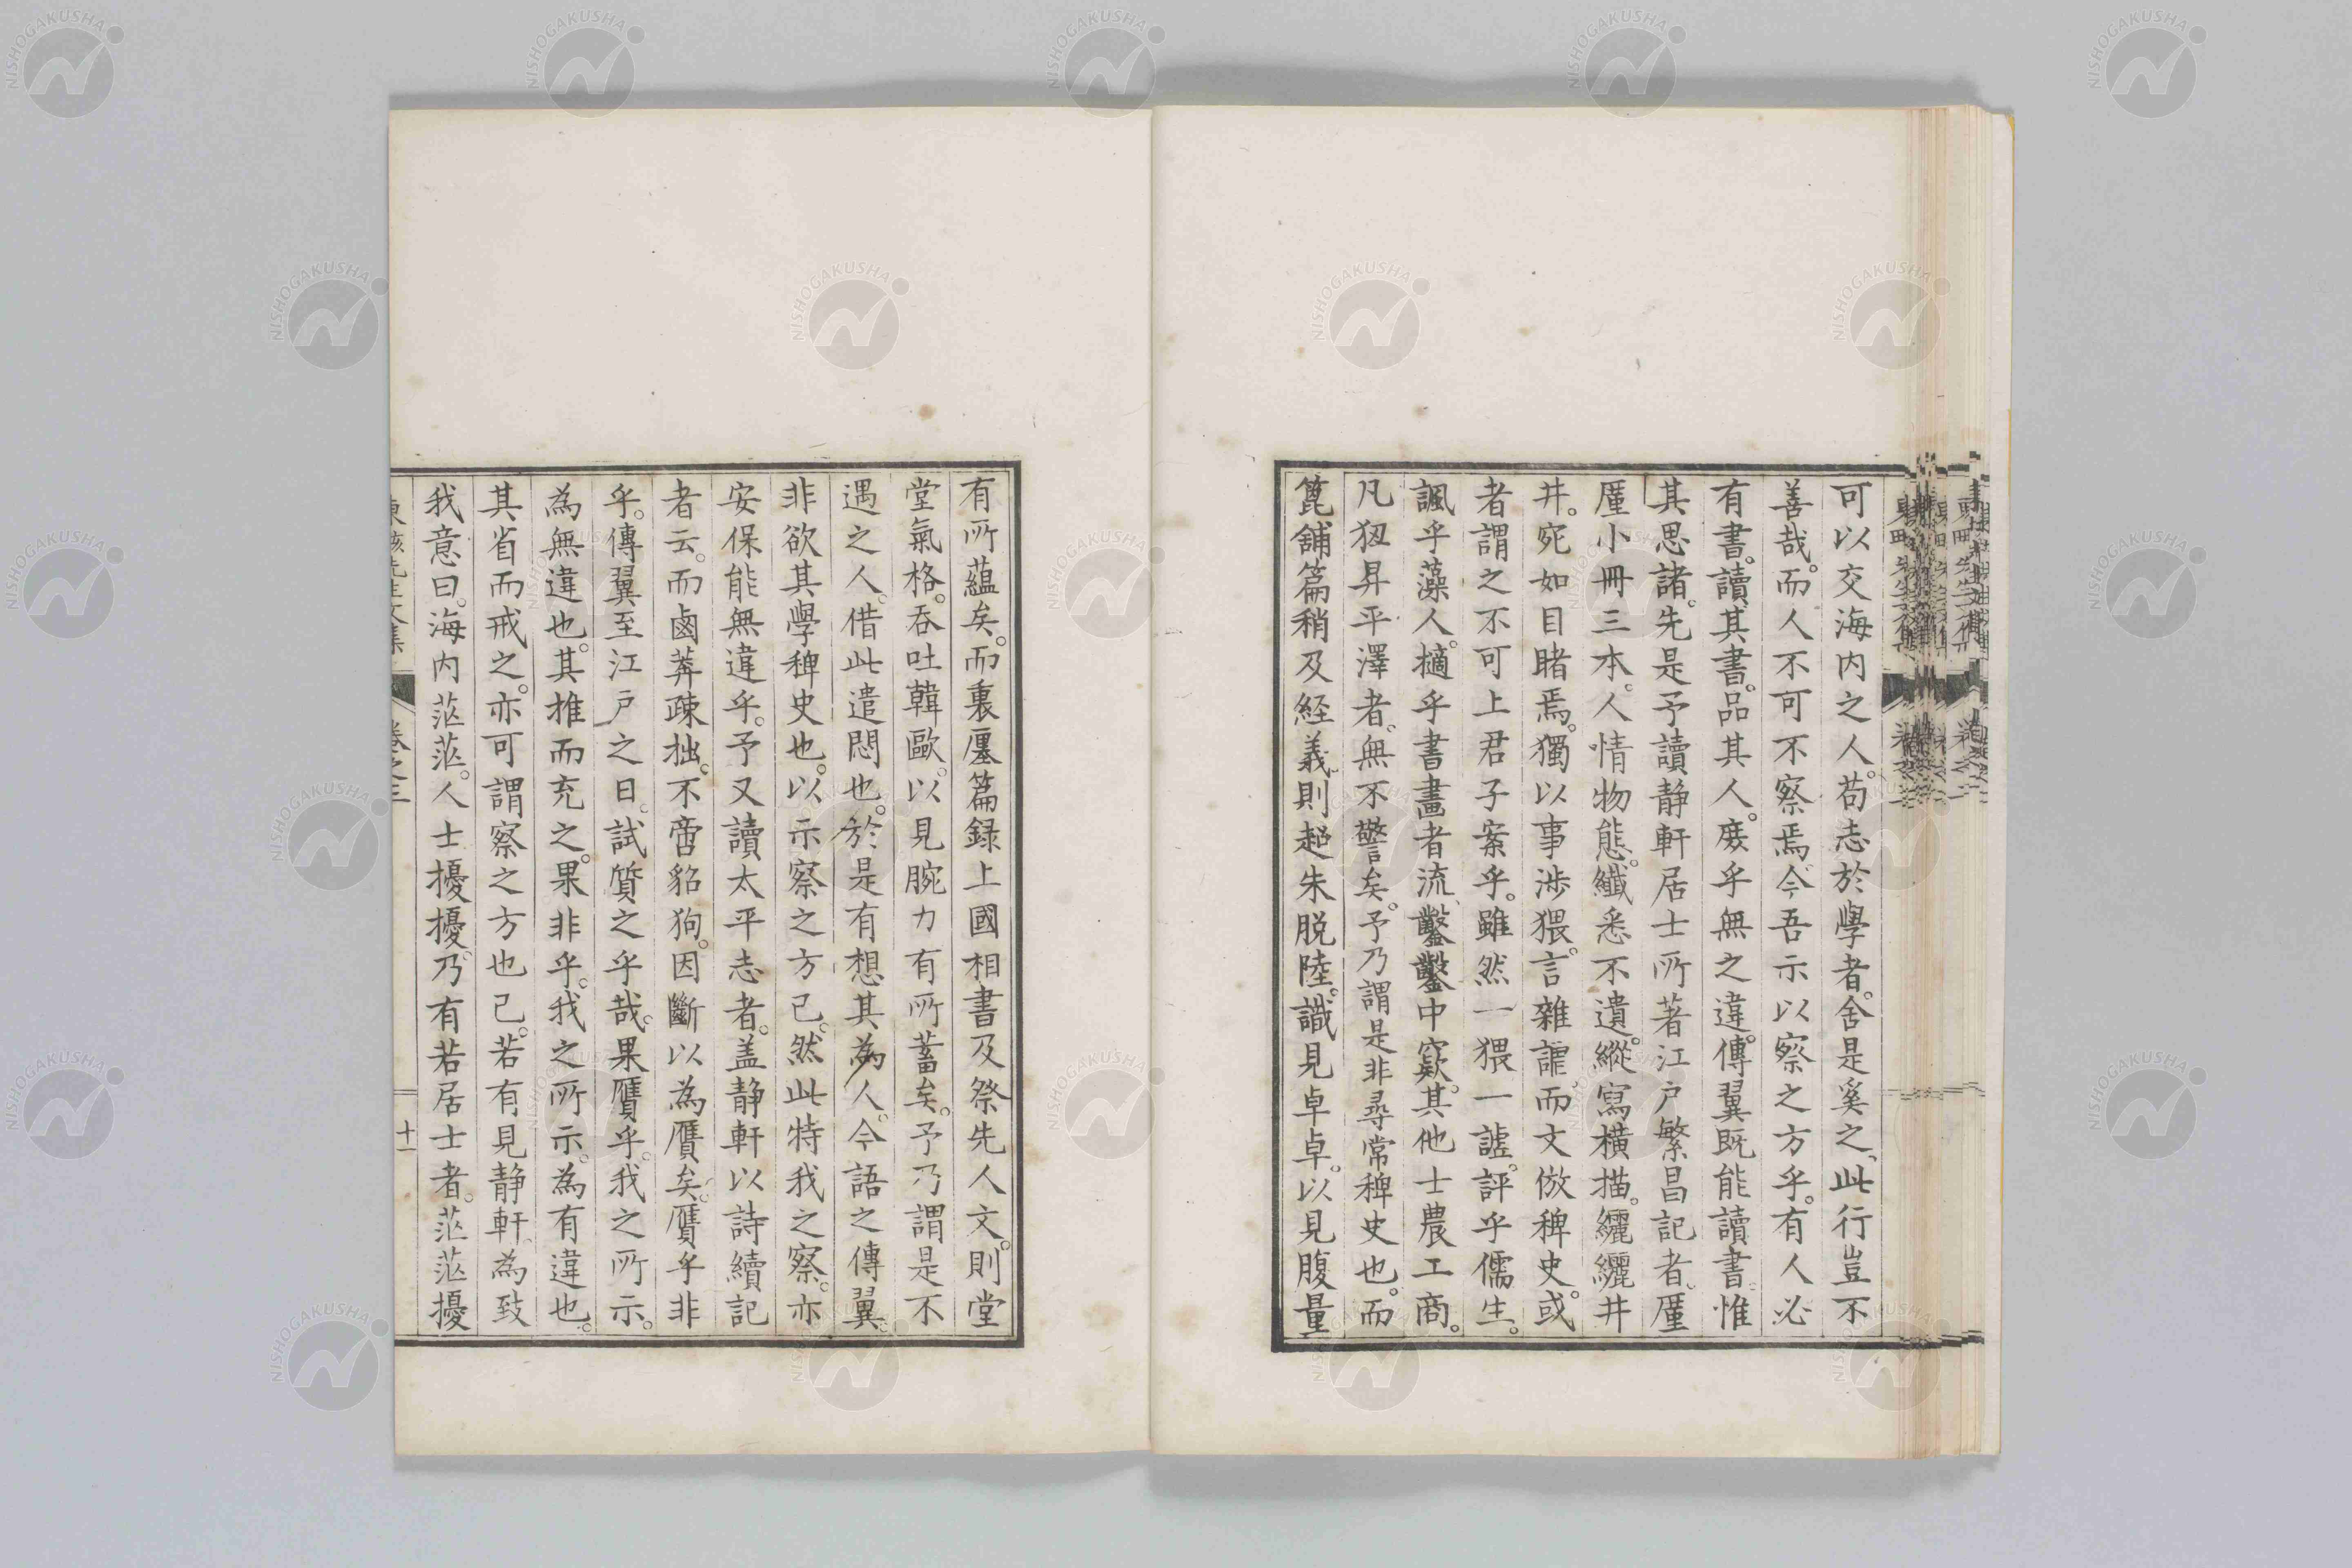 可以交海内之人。苟志於學者。舍是奚之、此行豈不
善哉。而人不可不察焉。今吾示以察之方乎。有人必
有書。讀其書。品其人。庶乎無之違。傳翼既能讀書。惟
其思諸。先是予讀静軒居士所著江戸繁昌記者。厪
厪小冊三本。人情物態。纖悉不遺。縱寫橫描。纚纚井
井。宛如目睹焉。獨以事渉猥。言雜謔而文倣稗史。或
者謂之不可上君子案乎。雖然一猥一謔。評乎儒生。
諷乎藻人。擿乎書畫者流、鑿鑿中窾。其他士農工商。
凡狃昇平澤者。無不警矣。予乃謂是非尋常稗史也。而
篦舖篇稍及経義。則超朱脱陸。識見卓卓。以見腹量
有所蘊矣。而裏廛篇録上國相書及祭先人文。則堂
堂氣格。呑吐韓歐。以見腕力有所蓄矣。予乃謂是不
遇之人。借此遣悶也。於是有想其為人。今語之傳翼。
非欲其學稗史也。以示察之方已。然此特我之察。亦
安保能無違乎。予又讀太平志者。盖静軒以詩續記
者云。而鹵莽疎拙。不啻貂狗。因斷以為贋矣。贋乎非
乎。傳翼至江戸之日。試質之乎哉。果贋乎。我之所示。
為無違也。其推而充之。果非乎。我之所示。為有違也。
其省而戒之。亦可謂察之方也已。若有見静軒。為致
我意曰。海内茫茫。人士擾擾。乃有若居士者。茫茫擾
先生文集 卷之三 十一